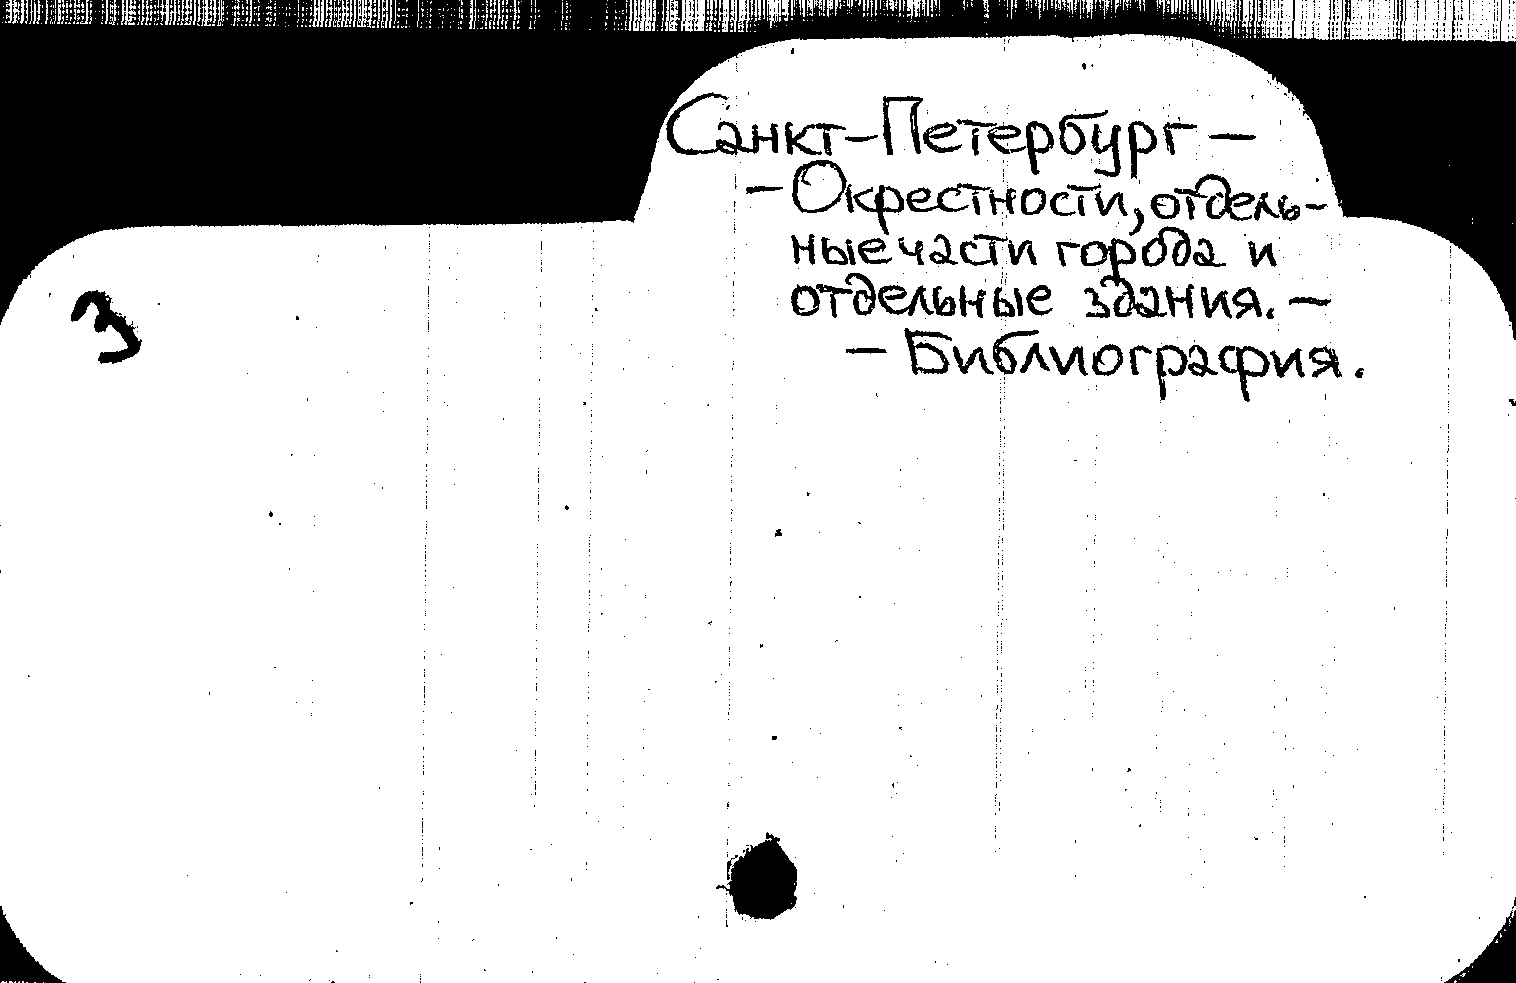 Санкт-Петербург —
— Окрестности, отдель-
ные части города и
отдельные здания. —
— Библиография.
3